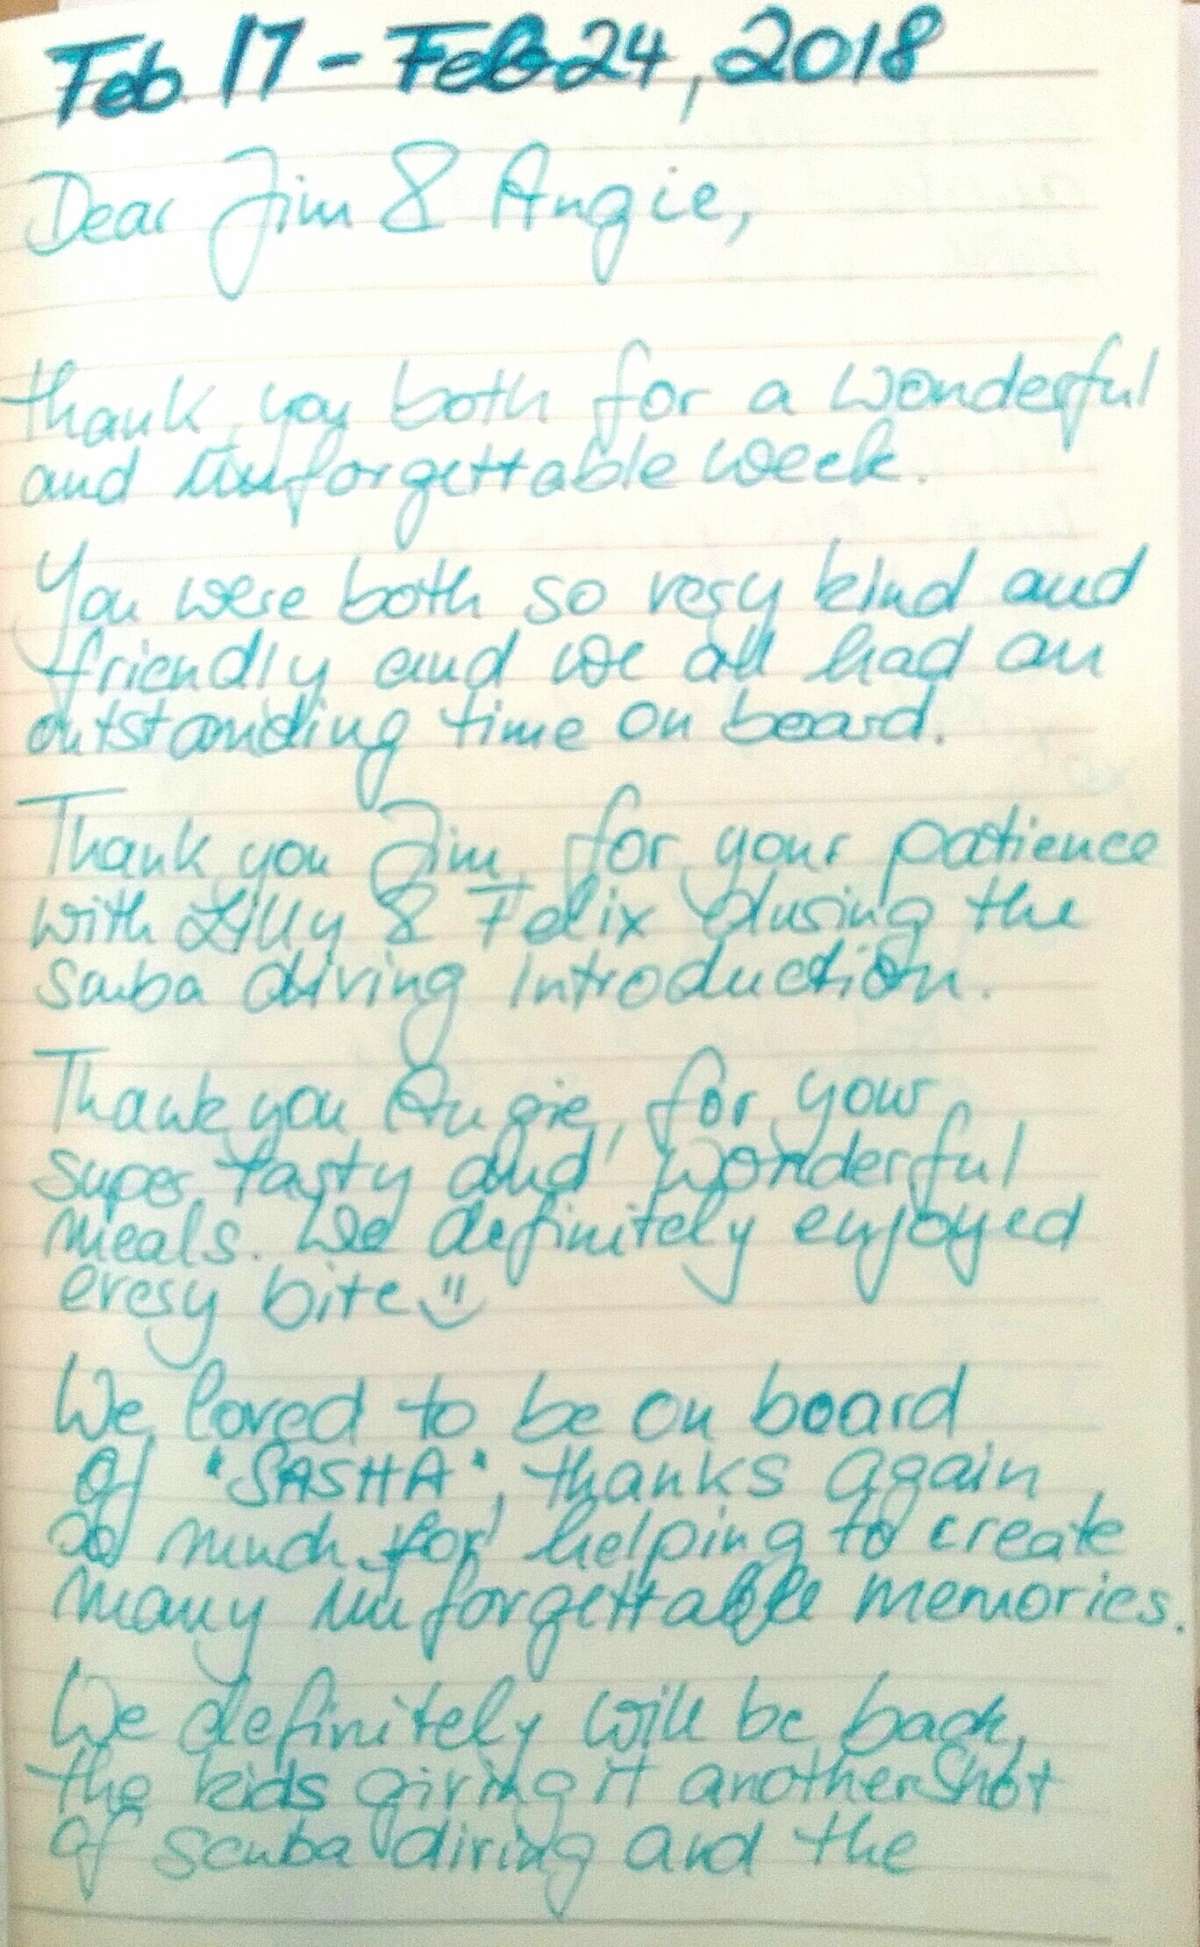 Feb 17 - Feb 24, 2018
Dear Jim & Angie,
thank you both for a wonderful
and unforgettable week.
You were both so very kind and
friendly and we all had an
outstanding time on board.
Thank you Jim, for your patience
with Lilly & Felix during the
scuba diving introduction.
Thank you Angie, for your
super tasty and wonderful
meals. We definitely enjoyed
every bite
We loved to be on board
of "SASHA", thanks again
so much for helping to create
many unforgettable memories.
We definitely will be back,
the kids giving it another shot
of scuba diving and the